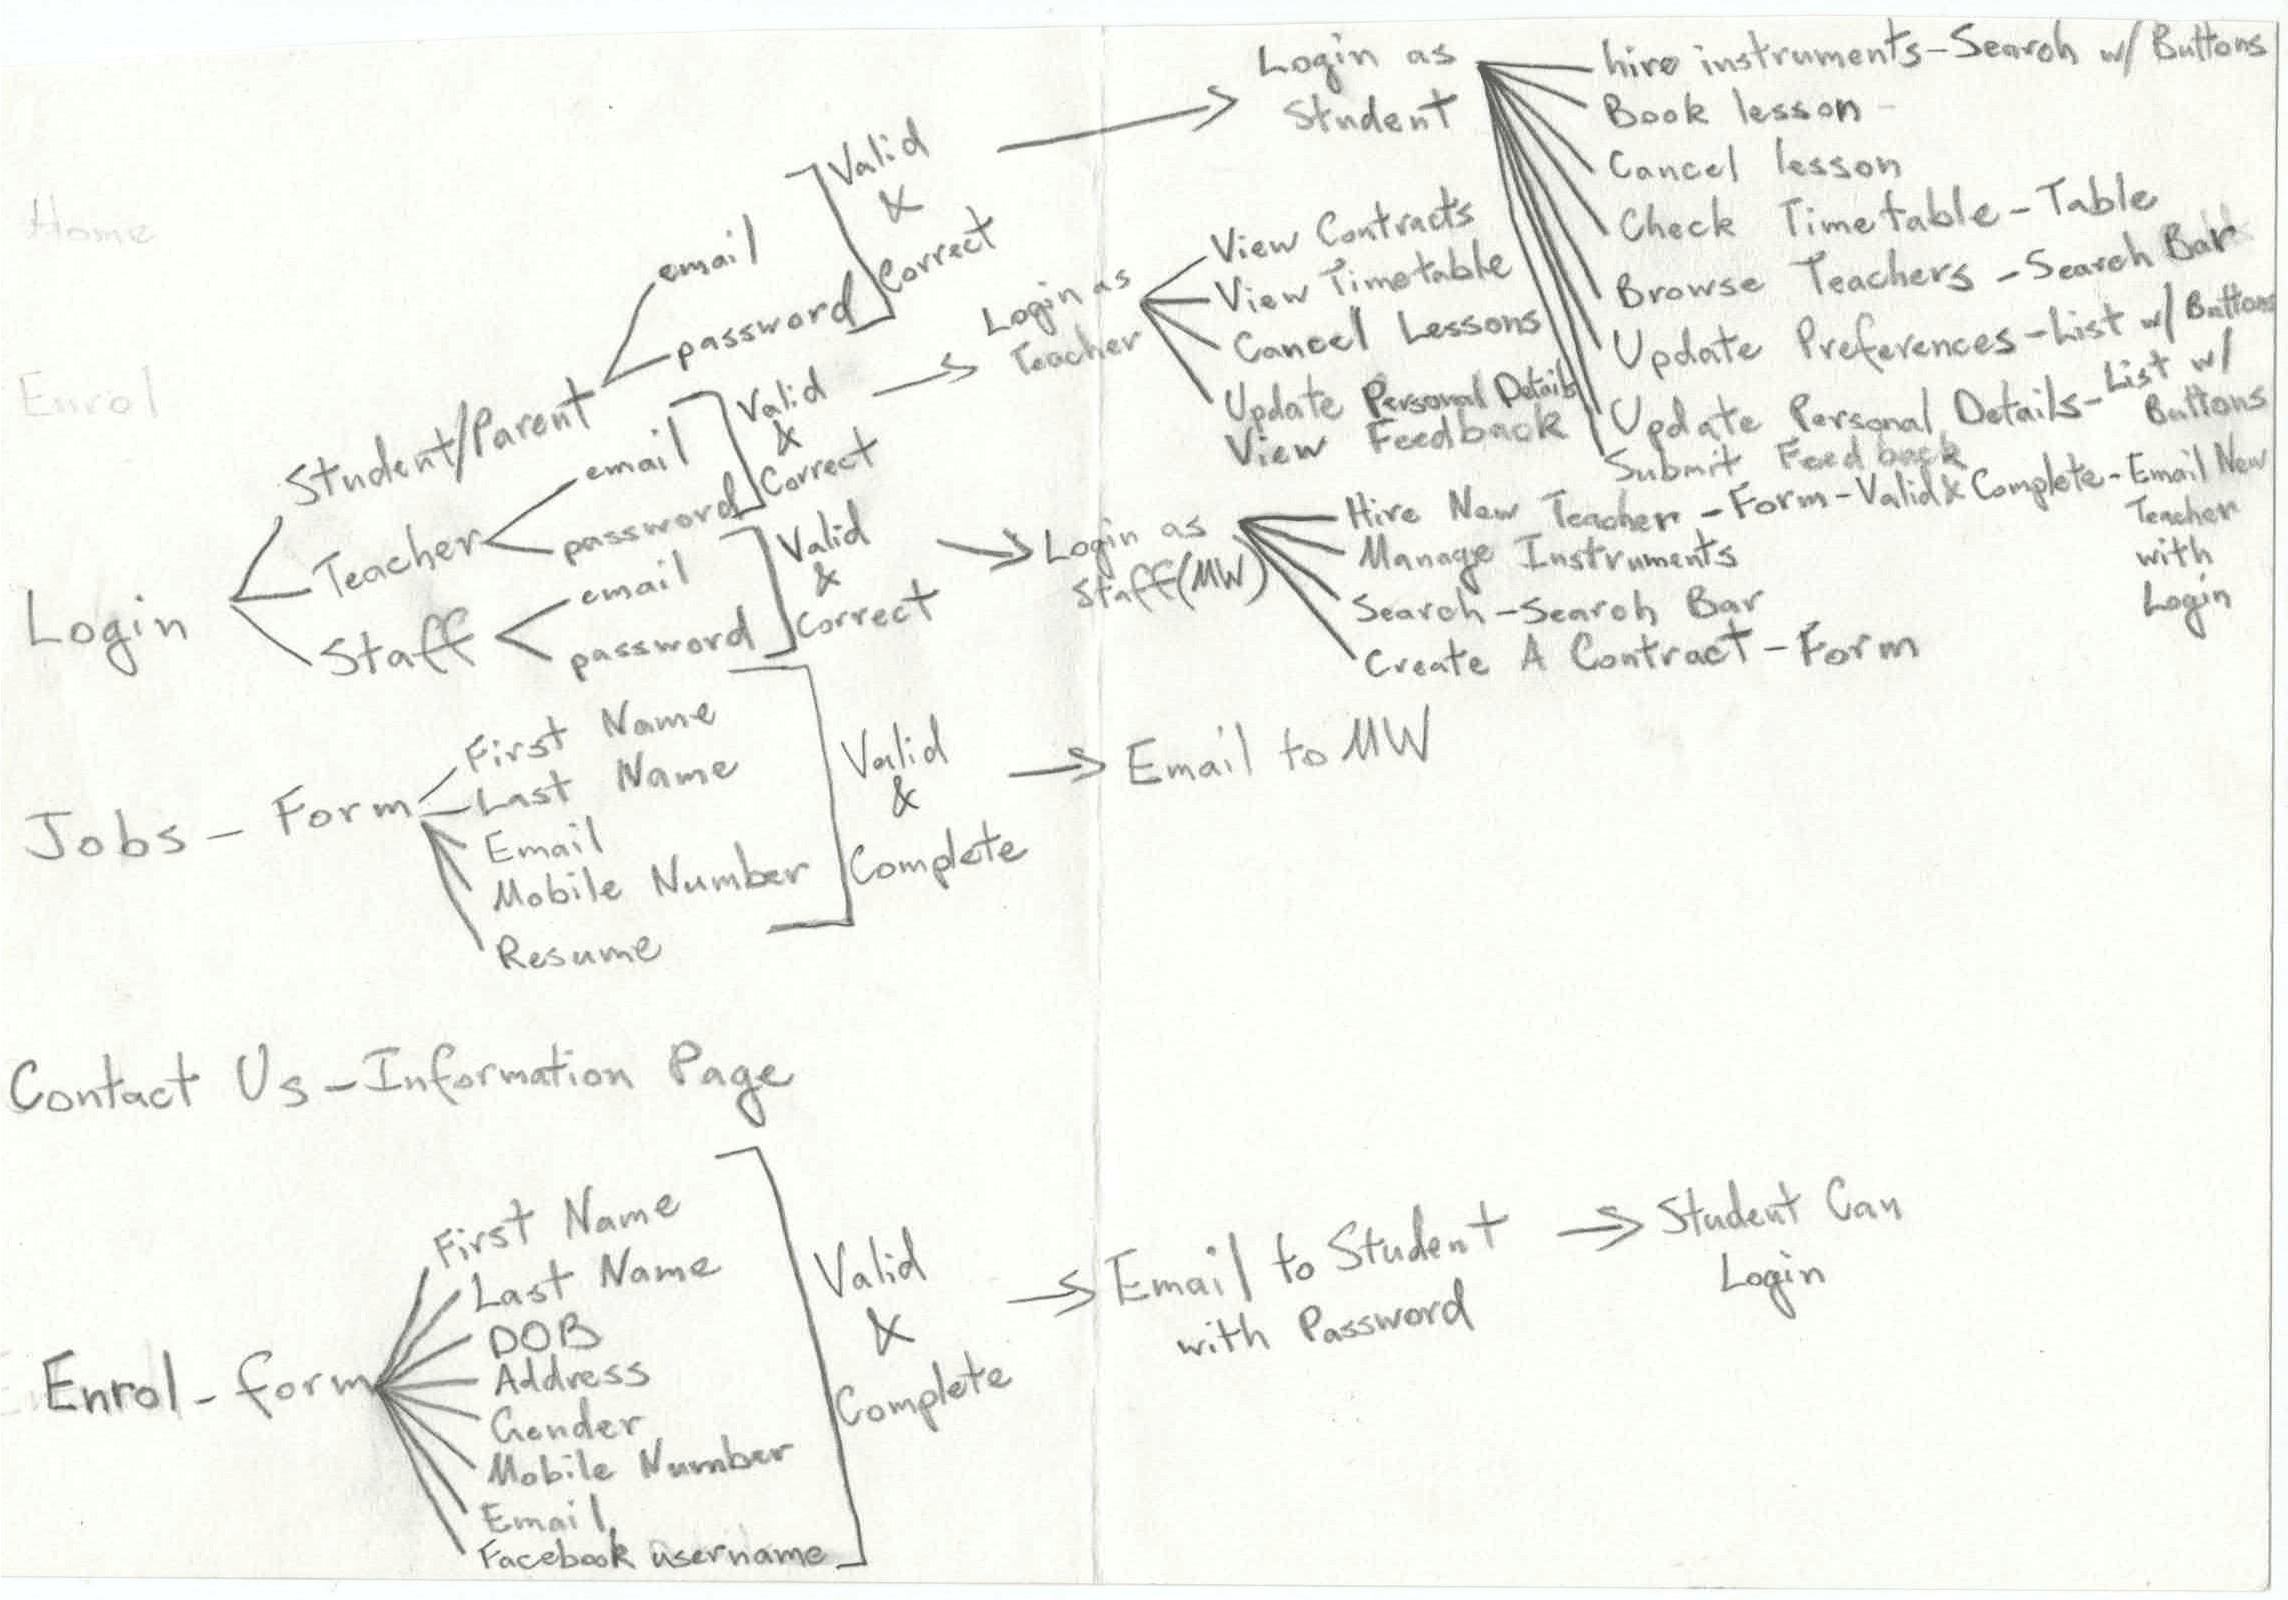 Home
Enrol
Login
Student/Parent
email
password
Valid
&
Correct
Login as
Student
hire instruments - Search w/ Buttons
Book lesson -
Cancel lesson
Check Timetable - Table
Browse Teachers - Search Bar
Update Preferences - List w/ Buttons
Update Personal Details - List w/
Buttons
Submit Feedback
Teacher
email
password
Valid
&
Correct
Login as
Teacher
View Contracts
View Timetable
Cancel Lessons
Update Personal Details
View Feedback
Staff
email
password
Valid
&
Correct
Login as
Staff (MW)
Hire New Teacher - Form - Valid & Complete - Email New
Teacher
with
Login
Manage Instruments
Search - Search Bar
Create A Contract - Form
Jobs - Form
First Name
Last Name
Email
Mobile Number
Resume
Valid
&
Complete
Email to MW
Contact Us - Information Page
Enrol - form
First Name
Last Name
DOB
Address
Gender
Mobile Number
Email
Facebook username
Valid
&
Complete
Email to Student
with Password
Student Can
Login